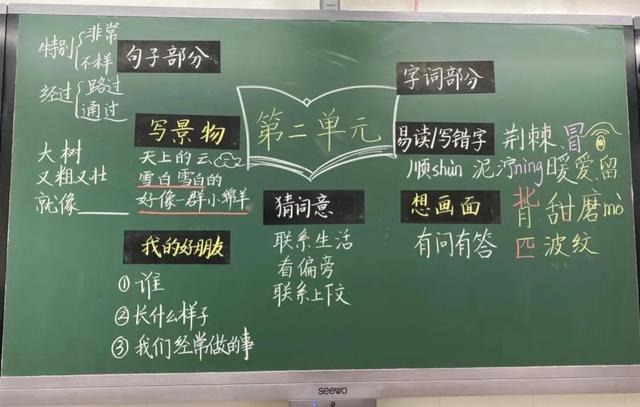 特别 非常
不一样
句子部分
经过 路过
通过
写景物
大树
又粗又壮
就像______
天上的云
雪白雪白的
好像一群小绵羊
我的好朋友
①谁
②长什么样子
③我们经常做的事
第二单元
猜词意
联系生活
看偏旁
联系上下文
字词部分
易读/写错字
荆棘、冒
顺shùn 泥泞nìng 暖 爱 留
背 甜 磨mò
匹 波纹
想画面
有问有答
seewo